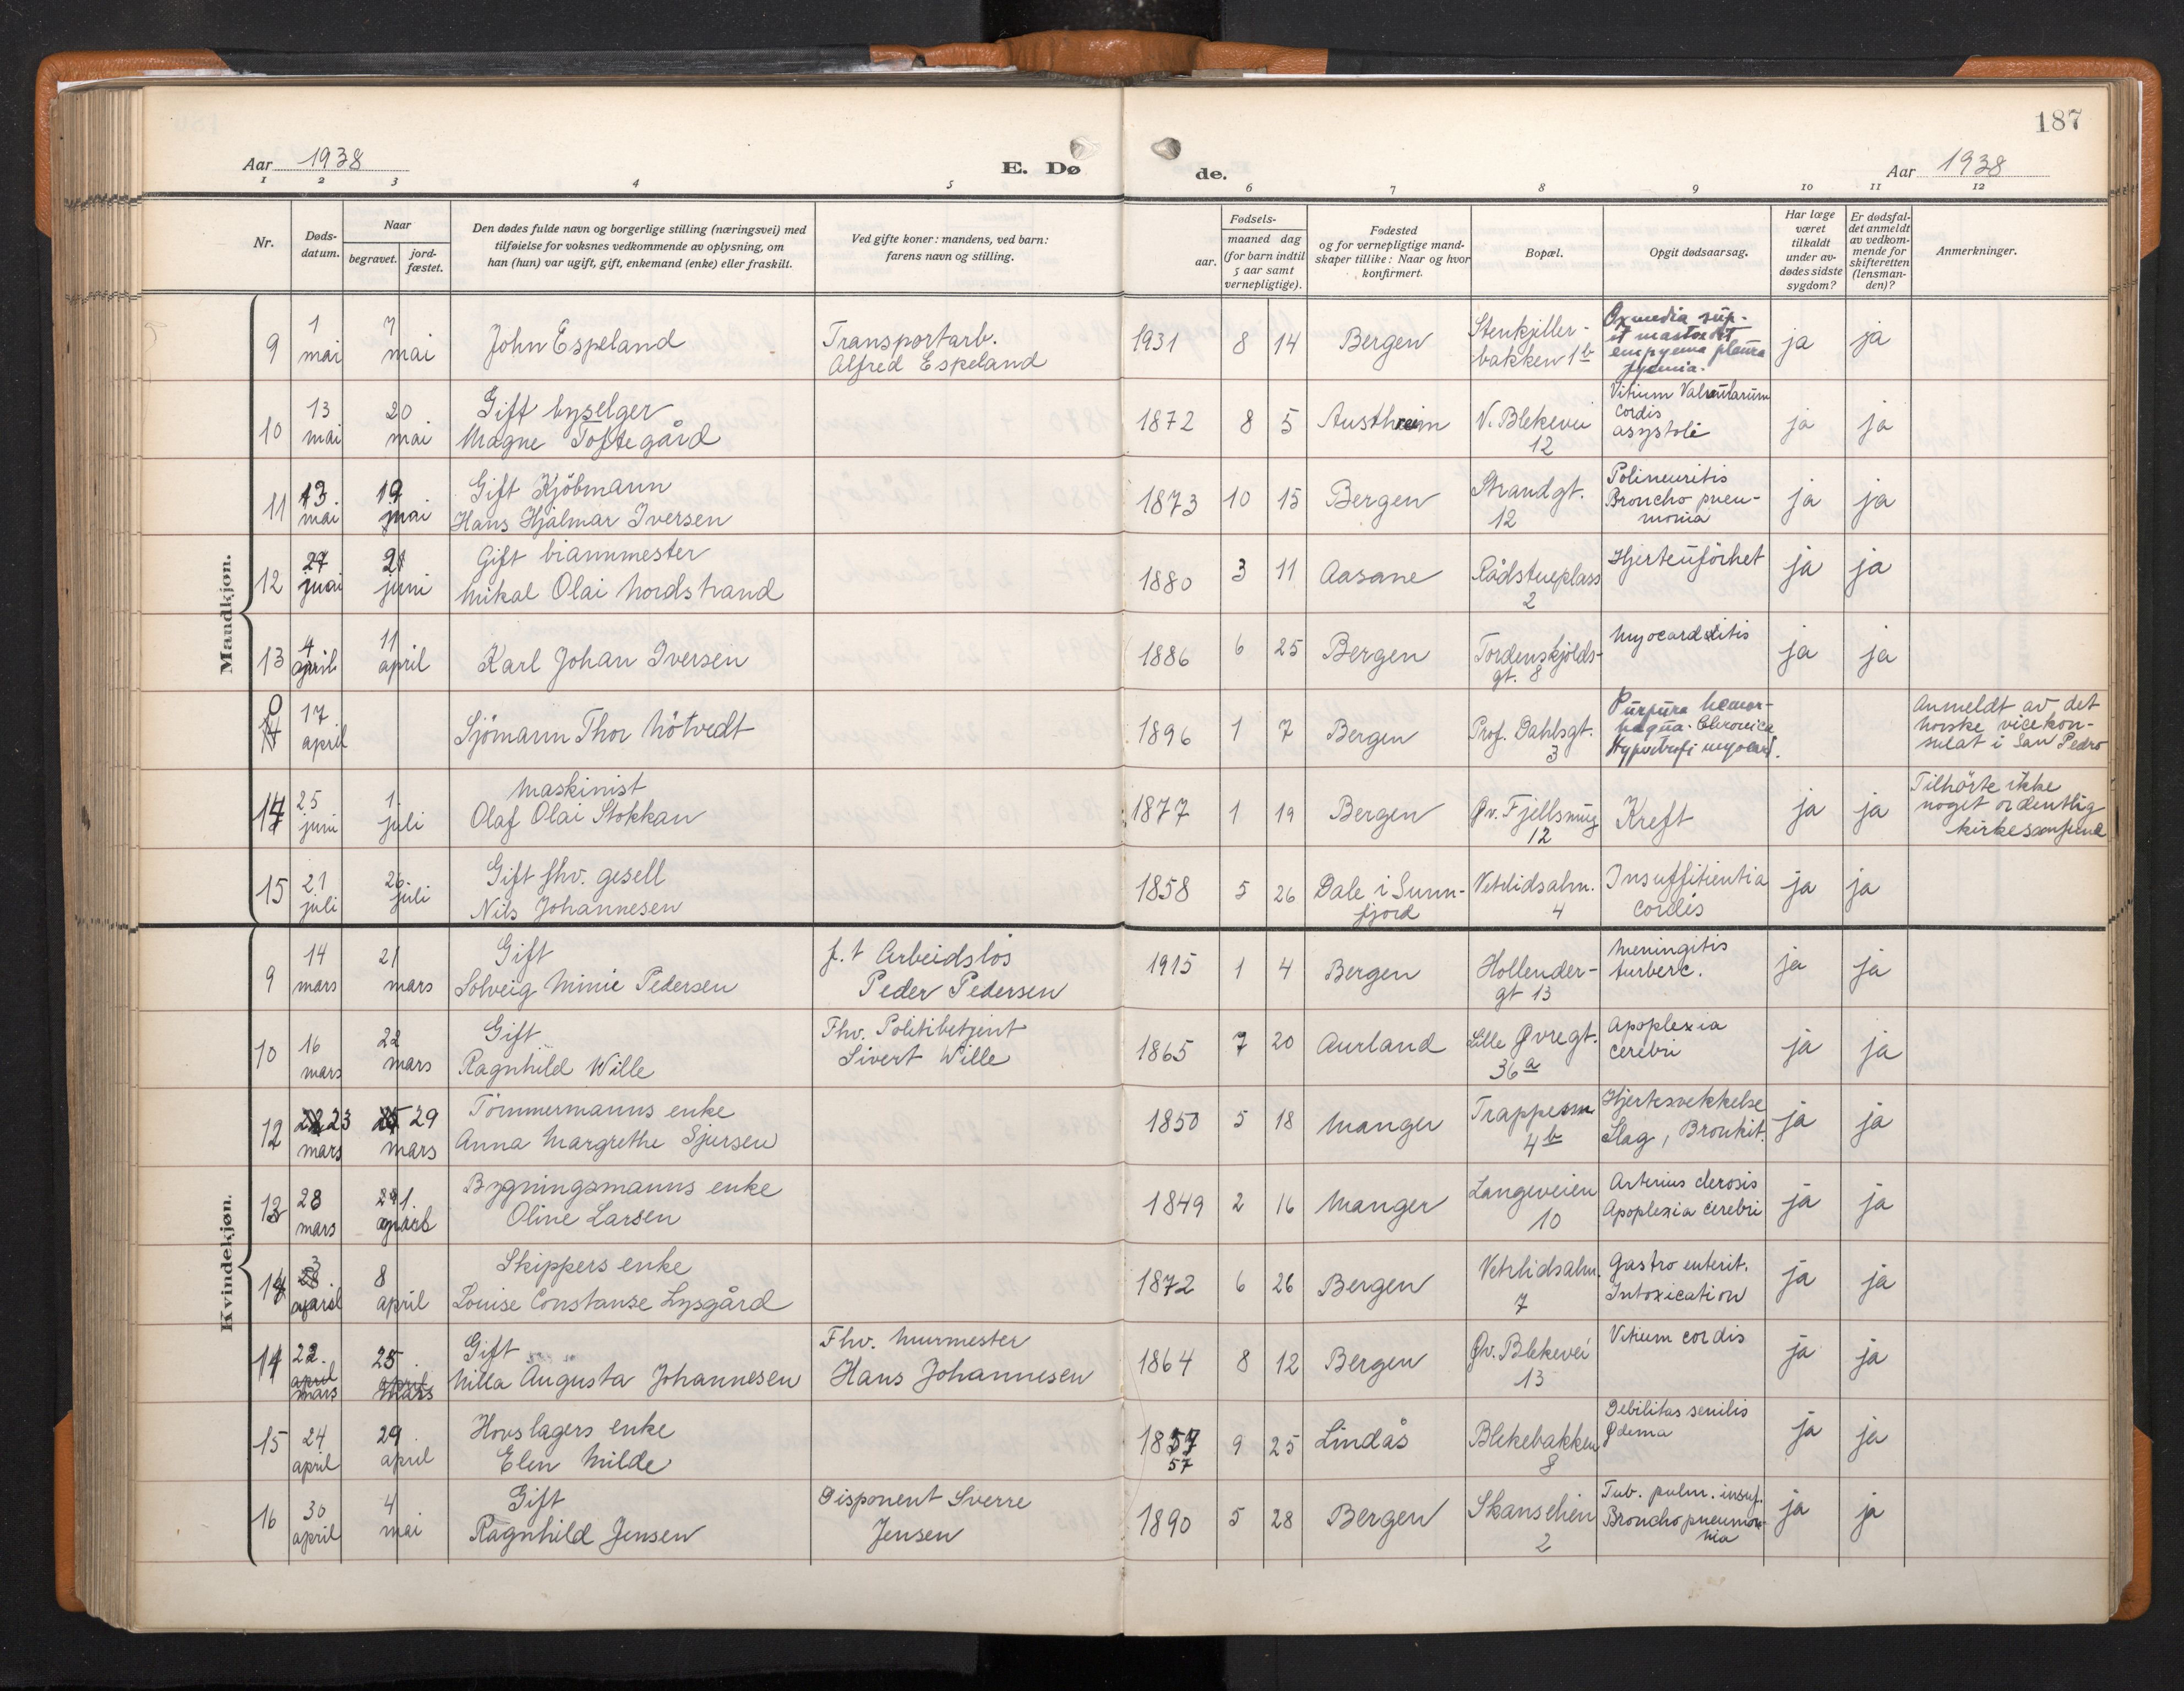 187
Aar 1938
E. Dø
de.
Aar 1938
1 2 3 4 5 6 7 8 9 10 11 12
Nr.
Døds-
datum.
Naar
begravet.
jord-
fæstet.
Den dødes fulde navn og borgerlige stilling (næringsvei) med
tilføielse for voksnes vedkommende av oplysning, om
han (hun) var ugift, gift, enkemand (enke) eller fraskilt.
Ved gifte koner: mandens, ved barn:
farens navn og stilling.
Fødsels-
aar.
maaned dag
(for barn indtil
5 aar samt
vernepligtige).
Fødested
og for vernepligtige mand-
skaper tillike: Naar og hvor
konfirmert.
Bopæl.
Opgit dødsaarsag.
Har læge
været
tilkaldt
under av-
dødes sidste
sygdom?
Er dødsfal-
det anmeldt
av vedkom-
mende for
skifteretten
(lensman-
den)?
Anmerkninger.
Mandkjøn.
9 1 mai 7 mai John Espeland Transportarb.
Alfred Espeland 1931 8 14 Bergen Stenkjeller-
bakken 1b
empyema pleura ja ja
10 13 mai 20 mai Gift byselger
Magne Toftegård 1872 8 5 Austhreim V. Blekevei
12 Vitium Valvularum
cordis
asystoli ja ja
11 13. mai 19 mai Gift Kjöbmann
Hans Hjalmar Iversen 1873 10 15 Bergen Strandgt.
12 Polineuritis
Broncho pneu-
monia ja ja
12 27 21 juni Gift brannmester
Mikal Olai Nordstrand 1880 3 11 Aasane Rådstueplass
2 Hjerteuförhet ja ja
13 4 april 11 april Karl Johan Iversen 1886 6 25 Bergen Tordenskjolds-
gt. 8 Myocarditis ja ja
0 17 april Sjömann Thor Nötvedt 1896 1 7 Bergen Prof. Dahlsgt.
3 Purpura hemor-
hagua. Chronica
Hypertrofi myocard. Anmeldt av det
norske vicekon-
sulat i San Pedro
14 25 juni 1. juli Maskinist
Olaf Olai Stokkan 1877 1 19 Bergen Øv. Fjellsmug
12 Kreft ja ja Tilhörte ikke
noget ordentlig
kirkesamfund
15 21 juli 26. juli Gift fhv. gesell
Nils Johannesen 1858 5 26 Dale i Sunn-
fjord Vetrlidsalm.
4 Insuffitientia
cordis ja ja
Kvindekjøn.
9 14 mars 21 mars Gift
Solveig Minie Pedersen f.t Arbeidslös
Peder Pedersen 1915 1 4 Bergen Hollender-
gt 13 Meningitis
turberc. ja ja
10 16 mars 22 mars Gift
Ragnhild Wille Fhv. Politibetjent
Sivert Wille 1865 7 20 Aurland Lille Øvregt.
36a Apoplexia
cerebri ja ja
12 23 mars 29 mars Tömmermanns enke
Anna Margrethe Sjursen 1850 5 18 Manger Trappesm
4b Hjertesvekkelse
Slag, Bronkit. ja ja
13 28 mars 1. april Bygningsmanns enke
Oline Larsen 1849 2 16 Manger Langeveien
10 Arterius clerosis
Apoplexia cerebri ja ja
14 3 april 8 april Skippers enke
Louise Constanse Lysgård 1872 6 26 Bergen Vetrlidsalm.
7 Gastro enterit.
Intoxication ja ja
14 22. april mars 25 april mars Gift
Milla Augusta Johannesen Fhv. Murmester
Hans Johannesen 1864 8 12 Bergen Øv. Blekevei
13 Vitium cordis ja ja
15 24 april 29 april Hovslagers enke
Elen Milde 1857
57 9 25 Lindås Blekebakken
8 Debilitas senilis
Ødema ja ja
16 30 april 4 mai Gift
Ragnhild Jensen Disponent Sverre
Jensen 1890 5 28 Bergen Skanselien
2 Tub. pulm. insuf.
Bronchopneumon-
nia ja ja